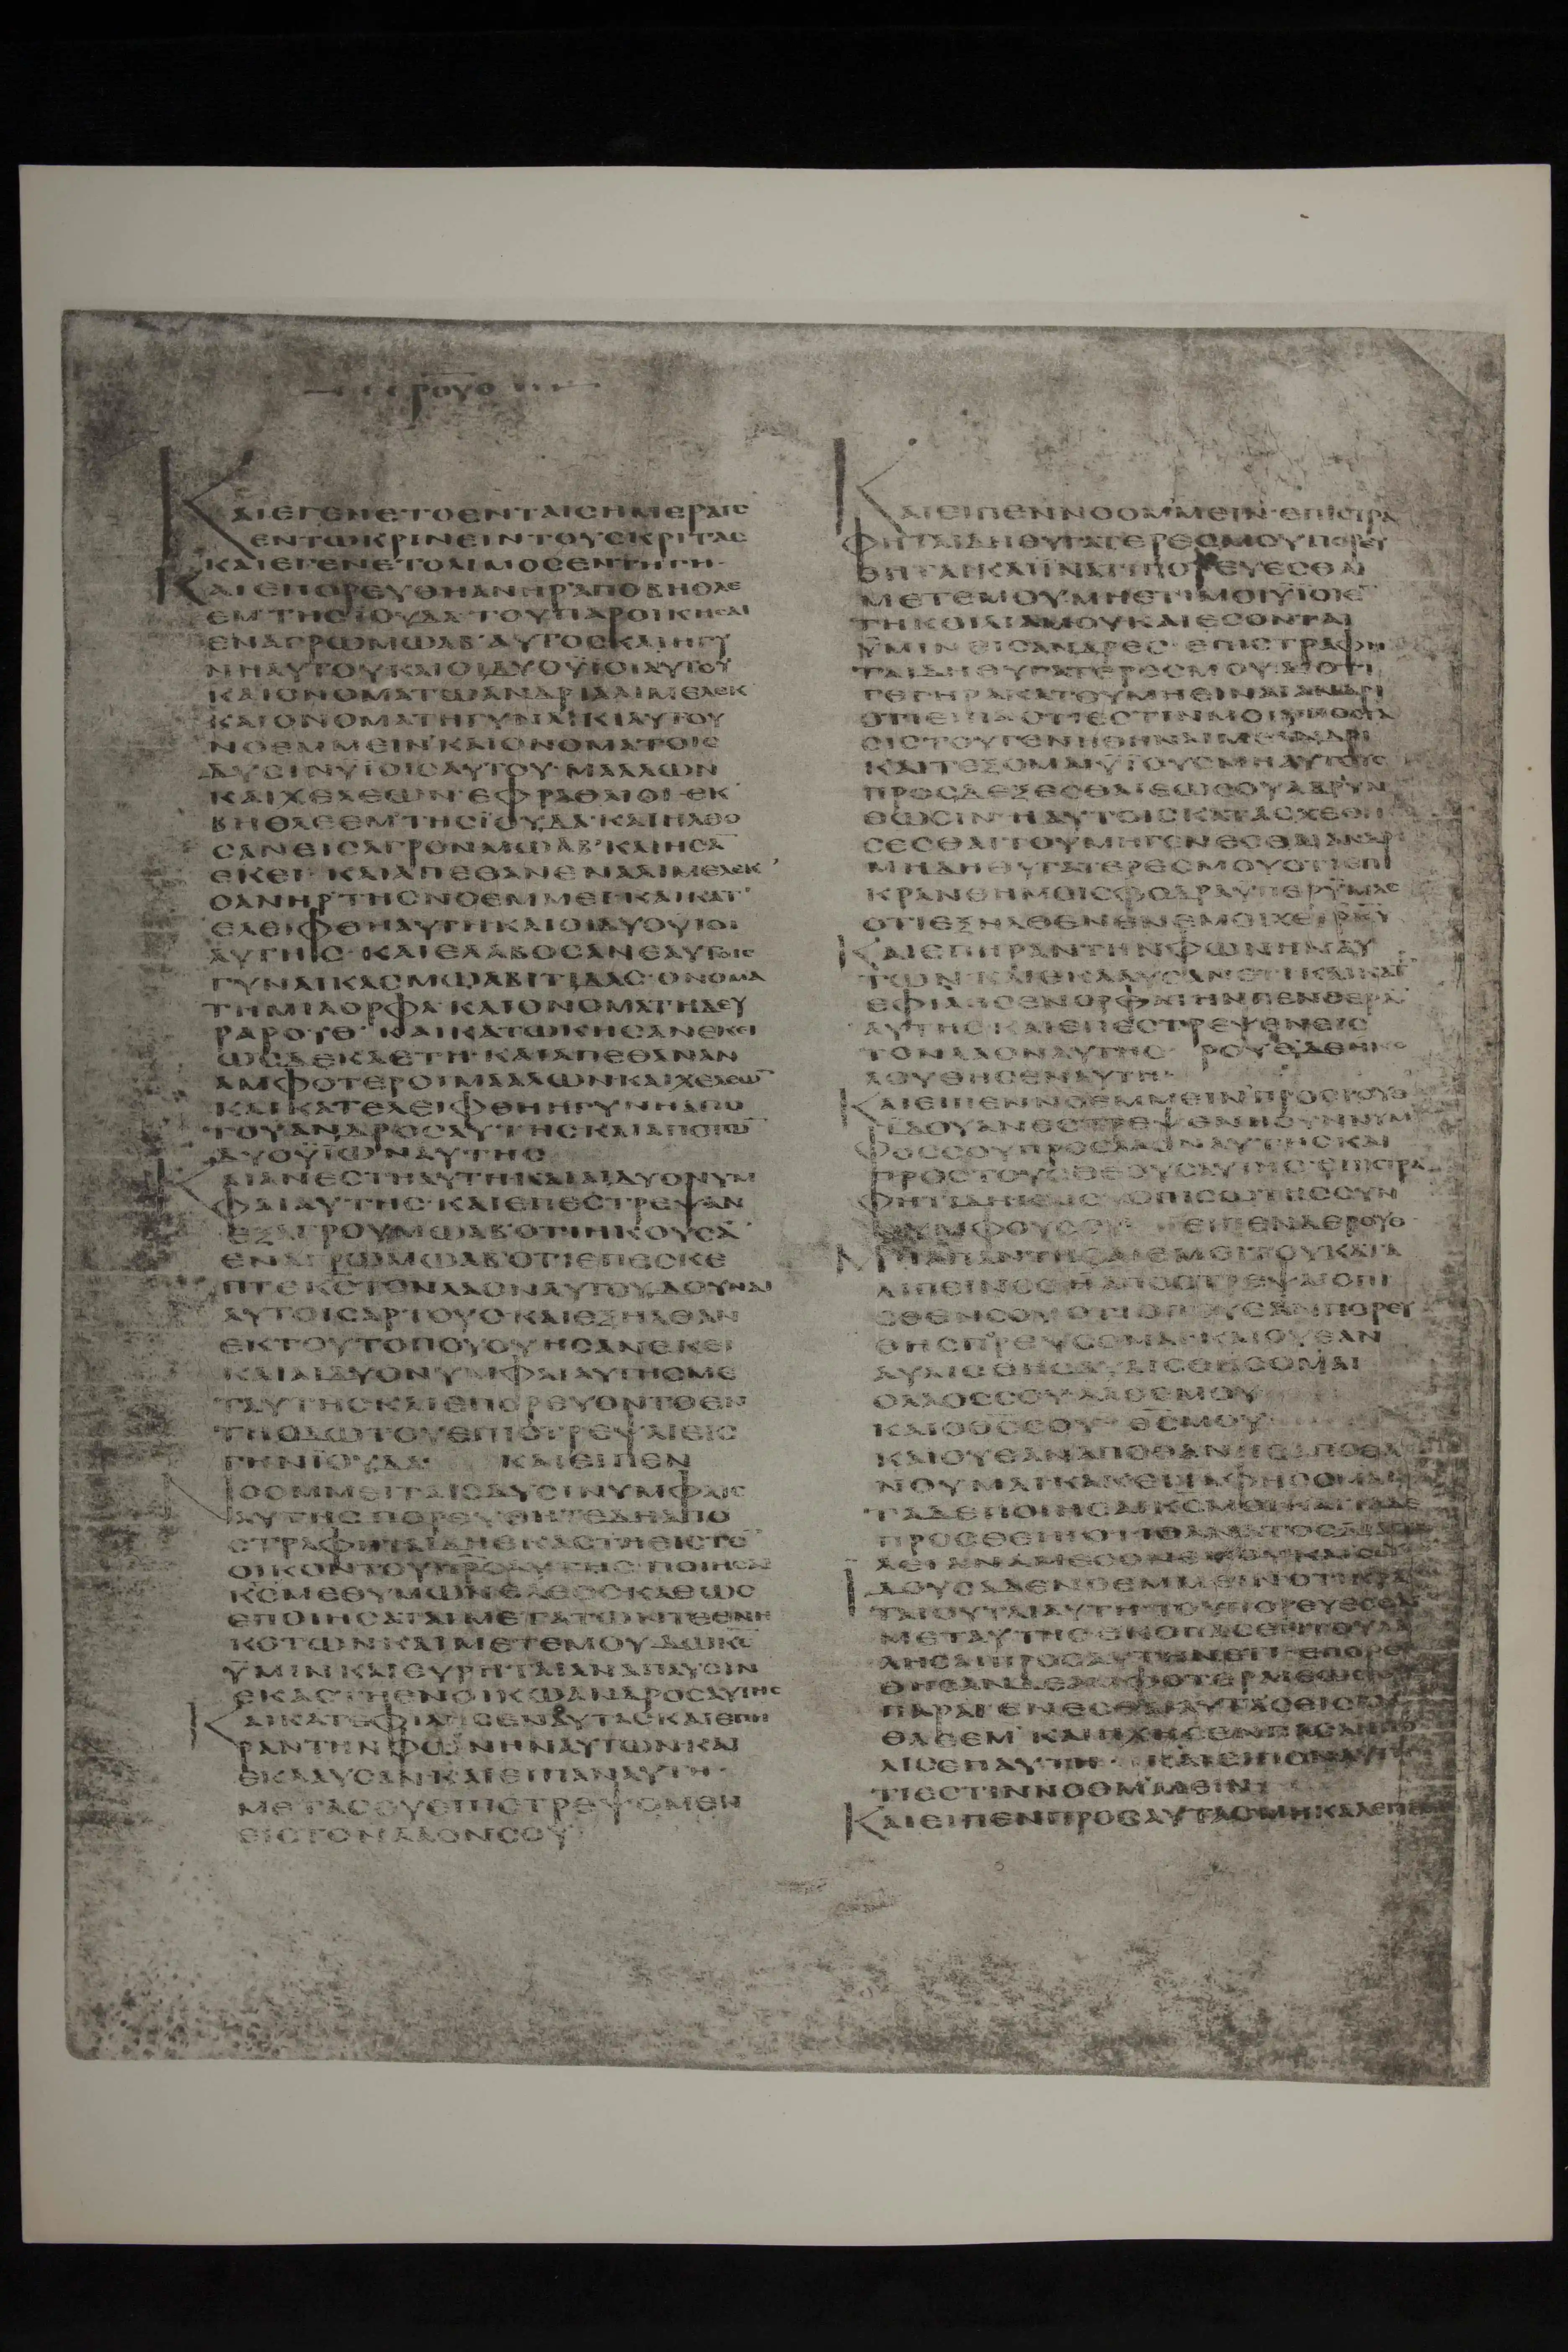 ρουθ
ΚΑΙΕΓΕΝΕΤΟΕΝΤΑΙCΗΜΕΡΑΙC
ΕΝΤΩΚΡΙΝΕΙΝΤΟΥCΚΡΙΤΑC
ΚΑΙΕΓΕΝΕΤΟΛΙΜΟCΕΝΤΗΓΗ·
ΚΑΙΕΠΟΡΕΥΘΗΑΝΗΡΑΠΟΒΗΘΛΕ
ΕΜ·ΤΗCΪΟΥΔΑ·ΤΟΥΠΑΡΟΙΚΗCΑΙ
ΕΝΑΓΡΩΜΩΑΒ·ΑΥΤΟCΚΑΙΗΓΥ
ΝΗΑΥΤΟΥΚΑΙΟΙΔΥΟΫΪΟΙΑΥΤΟΥ
ΚΑΙΟΝΟΜΑΤΩΑΝΔΡΙΑΛΙΜΕΛΕΚ
ΚΑΙΟΝΟΜΑΤΗΓΥΝΑΙΚΙΑΥΤΟΥ
ΝΟΕΜΜΕΙΝ·ΚΑΙΟΝΟΜΑΤΟΙC
ΔΥCΙΝΥΪΟΙCΑΥΤΟΥ·ΜΑΑΛΩΝ
ΚΑΙΧΕΛΕΩΝ·ΕΦΡΑΘΑΙΟΙ·ΕΚ
ΒΗΘΛΕΕΜ·ΤΗCΪΟΥΔΑ·ΚΑΙΗΛΘΟ
CΑΝΕΙCΑΓΡΟΝΜΩΑΒ·ΚΑΙΗCΑ̅
ΕΚΕΙ·ΚΑΙΑΠΕΘΑΝΕΝΑΛΙΜΕΛΕΚ
ΟΑΝΗΡΤΗCΝΟΕΜΜΕΙ·ΚΑΙΚΑΤ
ΕΛΕΙΦΘΗΑΥΤΗΚΑΙΟΙΔΥΟΥΪΟΙ
ΑΥΤΗC·ΚΑΙΕΛΑΒΟCΑΝΕΑΥΤΟΙC
ΓΥΝΑΙΚΑCΜΩΑΒΙΤΙΔΑC·ΟΝΟΜΑ
ΤΗΜΙΑΟΡΦΑ·ΚΑΙΟΝΟΜΑΤΗΔΕΥ
ΡΑΡΟΥΘ·ΚΑΙΚΑΤΩΚΗCΑΝΕΚΕΙ
ΩCΔΕΚΑΕΤΗ·ΚΑΙΑΠΕΘΑΝΑΝ
ΑΜΦΟΤΕΡΟΙΜΑΑΛΩΝΚΑΙΧΕΛΕΩ̅
ΚΑΙΚΑΤΕΛΕΙΦΘΗΗΓΥΝΗΑΠΟ
ΤΟΥΑΝΔΡΟCΑΥΤΗCΚΑΙΑΠΟΤΩ̅
ΔΥΟΫΪΩΝΑΥΤΗC
ΚΑΙΑΝΕCΤΗΑΥΤΗΚΑΙΑΙΔΥΟΝΥΜ
ΦΑΙΑΥΤΗC·ΚΑΙΕΠΕCΤΡΕΨΑΝ
ΕΞΑΓΡΟΥΜΩΑΒ·ΟΤΙΗΚΟΥCΑ̅
ΕΝΑΓΡΩΜΩΑΒ·ΟΤΙΕΠΕCΚΕ
ΠΤΕΚ̅C̅ΤΟΝΛΑΟΝΑΥΤΟΥΔΟΥΝΑΙ
ΑΥΤΟΙCΑΡΤΟΥC·ΚΑΙΕΞΗΛΘΑΝ
ΕΚΤΟΥΤΟΠΟΥΟΥΗCΑΝΕΚΕΙ
ΚΑΙΑΙΔΥΟΝΥΜΦΑΙΑΥΤΗCΜΕ
ΤΑΥΤΗCΚΑΙΕΠΟΡΕΥΟΝΤΟΕΝ
ΤΗΟΔΩΤΟΥΕΠΙCΤΡΕΨΑΙΕΙC
ΓΗΝΪΟΥΔΑ· ΚΑΙΕΙΠΕΝ
ΝΟΟΜΜΕΙΤΑΙCΔΥCΙΝΥΜΦΑΙC
ΑΥΤΗCΠΟΡΕΥΘΗΤΕΔΗΑΠΟ
CΤΡΑΦΗΤΑΙΔΗΕΚΑCΤΗΕΙCΤΟ̅
ΟΙΚΟΝΤΟΥΠ̅Ρ̅C̅ΑΥΤΗC·ΠΟΙΗCΑΙ
Κ̅C̅ΜΕΘΥΜΩΝΕΛΕΟCΚΑΘΩC
ΕΠΟΙΗCΑΤΑΙΜΕΤΑΤΩΝΤΕΘΝΗ
ΚΟΤΩΝΚΑΙΜΕΤΕΜΟΥ·ΔΩΚ̅C̅
ΫΜΙΝΚΑΙΕΥΡΗΤΑΙΑΝΑΠΑΥCΙΝ
ΕΚΑCΤΗΕΝΟΙΚΩΑΝΔΡΟCΑΥΤΗC
ΚΑΙΚΑΤΕΦΙΛΗCΕΝΑΥΤΑC·ΚΑΙΕΠΗ
ΡΑΝΤΗΝΦΩΝΗΝΑΥΤΩΝΚΑΙ
ΕΚΛΑΥCΑΝΚΑΙΕΙΠΑΝΑΥΤΗ·
ΜΕΤΑCΟΥΕΠΙCΤΡΕΨΟΜΕΝ
ΕΙCΤΟΝΛΑΟΝCΟΥ
ΚΑΙΕΙΠΕΝΝΟΟΜΜΕΙΝ·ΕΠΙCΤΡΑ
ΦΗΤΑΙΔΗΘΥΓΑΤΕΡΕCΜΟΥΠΟΡΕΥ
ΘΗΤΑΙ·ΚΑΙΪΝΑΤΙΠΟΡΕΥΕCΘΑΙ
ΜΕΤΕΜΟΥ·ΜΗΕΤΙΜΟΙΥΪΟΙΕ̅
ΤΗΚΟΙΛΙΑΜΟΥΚΑΙΕCΟΝΤΑΙ
ΫΜΙΝΕΙCΑΝΔΡΕC·ΕΠΙCΤΡΑΦΗ
ΤΑΙΔΗΘΥΓΑΤΕΡΕCΜΟΥ·ΔΙΟΤΙ
ΓΕΓΗΡΑΚΑΤΟΥΜΗΕΙΝΑΙΑΝΔΡΙ
ΟΤΙΕΙΠΑΟΤΙΕCΤΙΝΜΟΙΥΠΟCΤΑ
CΙCΤΟΥΓΕΝΗΘΗΝΑΙΜΕΑΝΔΡΙ
ΚΑΙΤΕΞΟΜΑΙΥΪΟΥC·ΜΗΑΥΤΟΥC
ΠΡΟCΔΕΞΕCΘΑΙΕΩCΟΥΑΔΡΥΝ
ΘΩCΙΝ·ΗΑΥΤΟΙCΚΑΤΑCΧΕΘΗ
CΕCΘΑΙΤΟΥΜΗΓΕΝΕCΘΑΙΑΝΔΡΙ
ΜΗΔΗΘΥΓΑΤΕΡΕCΜΟΥ·ΟΤΙΕΠΙ
ΚΡΑΝΘΗΜΟΙCΦΟΔΡΑΫΠΕΡΫΜΑC
ΟΤΙΕΞΗΛΘΕΝΕΝΕΜΟΙΧΕΙΡΚ̅Υ̅
ΚΑΙΕΠΗΡΑΝΤΗΝΦΩΝΗΝΑΥ
ΤΩΝ·ΚΑΙΕΚΛΑΥCΑΝΕΤΙΚΑΙΚΑΤ
ΕΦΙΛΗCΕΝΟΡΦΑΤΗΝΠΕΝΘΕΡΑ̅
ΑΥΤΗCΚΑΙΕΠΕCΤΡΕΨΕΝΕΙC
ΤΟΝΛΑΟΝΑΥΤΗC· ΡΟΥΘΔΕΗΚΟ
ΛΟΥΘΗCΕΝΑΥΤΗ·
ΚΑΙΕΙΠΕΝΝΟΕΜΜΕΙΝΠΡΟCΡΟΥΘ·
ΪΔΟΥΑΝΕCΤΡΕΨΕΝΗCΥΝΝΥΜ
ΦΟCCΟΥΠΡΟCΛΑΟΝΑΥΤΗCΚΑΙ
ΠΡΟCΤΟΥCΘΕΟΥCΑΥΤΗC·ΕΠΙCΤΡΑ
ΝΥΜΦΟΥCΟΥ· ΕΙΠΕΝΔΕΡΟΥΘ·
ΜΗΑΠΑΝΤΗCΑΙΕΜΟΙΤΟΥΚΑΤΑ
ΛΙΠΕΙΝCΕΗΑΠΟCΤΡΕΨΑΙΟΠΙ
CΘΕΝCΟΥ·ΟΤΙΟΠΟΥCΑΝΠΟΡΕΥ
ΘΗCΠΟΡΕΥCΟΜΑΙ·ΚΑΙΟΥΕΑΝ
ΑΥΛΙCΘΗCΑΥΛΙCΘΗCΟΜΑΙ
ΟΛΑΟCCΟΥ·ΛΑΟCΜΟΥ
ΚΑΙΟΘ̅C̅CΟΥ· Θ̅C̅ΜΟΥ·
ΚΑΙΟΥΕΑΝΑΠΟΘΑΝΗCΑΠΟΘΑ
ΝΟΥΜΑΙ·ΚΑΚΕΙΤΑΦΗCΟΜΑΙ
ΤΑΔΕΠΟΙΗCΑΙΚ̅C̅ΜΟΙΚΑΙΤΑΔΕ
ΠΡΟCΘΕΙΗΟΤΙΘΑΝΑΤΟCΔΙΑCΤΕ
ΛΕΙΑΝΑΜΕCΟΝΕΜΟΥΚΑΙCΟΥ
ΪΔΟΥCΑΔΕΝΟΕΜΜΕΙΝΟΤΙΚΡΑ
ΤΑΙΟΥΤΑΙΑΥΤΗ·ΤΟΥΠΟΡΕΥΕCΘΑΙ
ΜΕΤΑΥΤΗCΕΚΟΠΑCΕΝΤΟΥΛΑ
ΛΗCΑΙΠΡΟCΑΥΤΗΝΕΤΙ·ΕΠΟΡΕΥ
ΘΗCΑΝΔΕΑΜΦΟΤΕΡΑΙΕΩC
ΠΑΡΑΓΕΝΕCΘΑΙΑΥΤΑCΕΙCΒΗ
ΘΛΕΕΜ·ΚΑΙΗΧΗCΕΝΠΑCΑΗΠΟ
ΛΙCΕΠΑΥΤΗ· ΚΑΙΕΙΠΟΝΑΥΤΗ
ΤΙCΕCΤΙΝΝΟΟΜΜΕΙΝ
ΚΑΙΕΙΠΕΝΠΡΟCΑΥΤΑCΜΗΚΑΛΕΙΤΕ